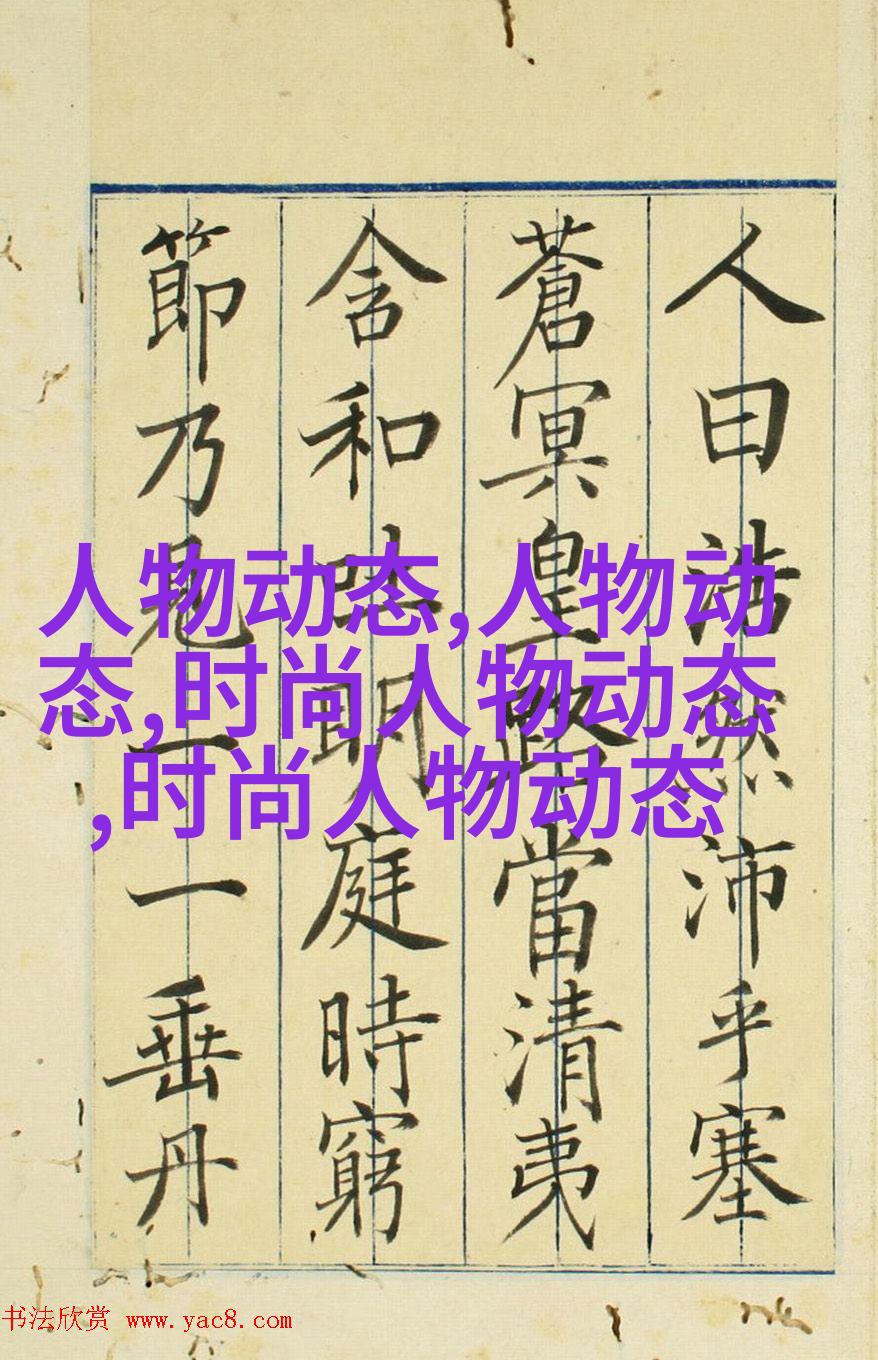 人曰浩然沛乎塞
蒼冥皇路當清夷
含和吐明庭時窮
節乃見一一垂丹
人物动态,人物动
态,时尚人物动态
,时尚人物动态
书法欣赏 www.yac8.com